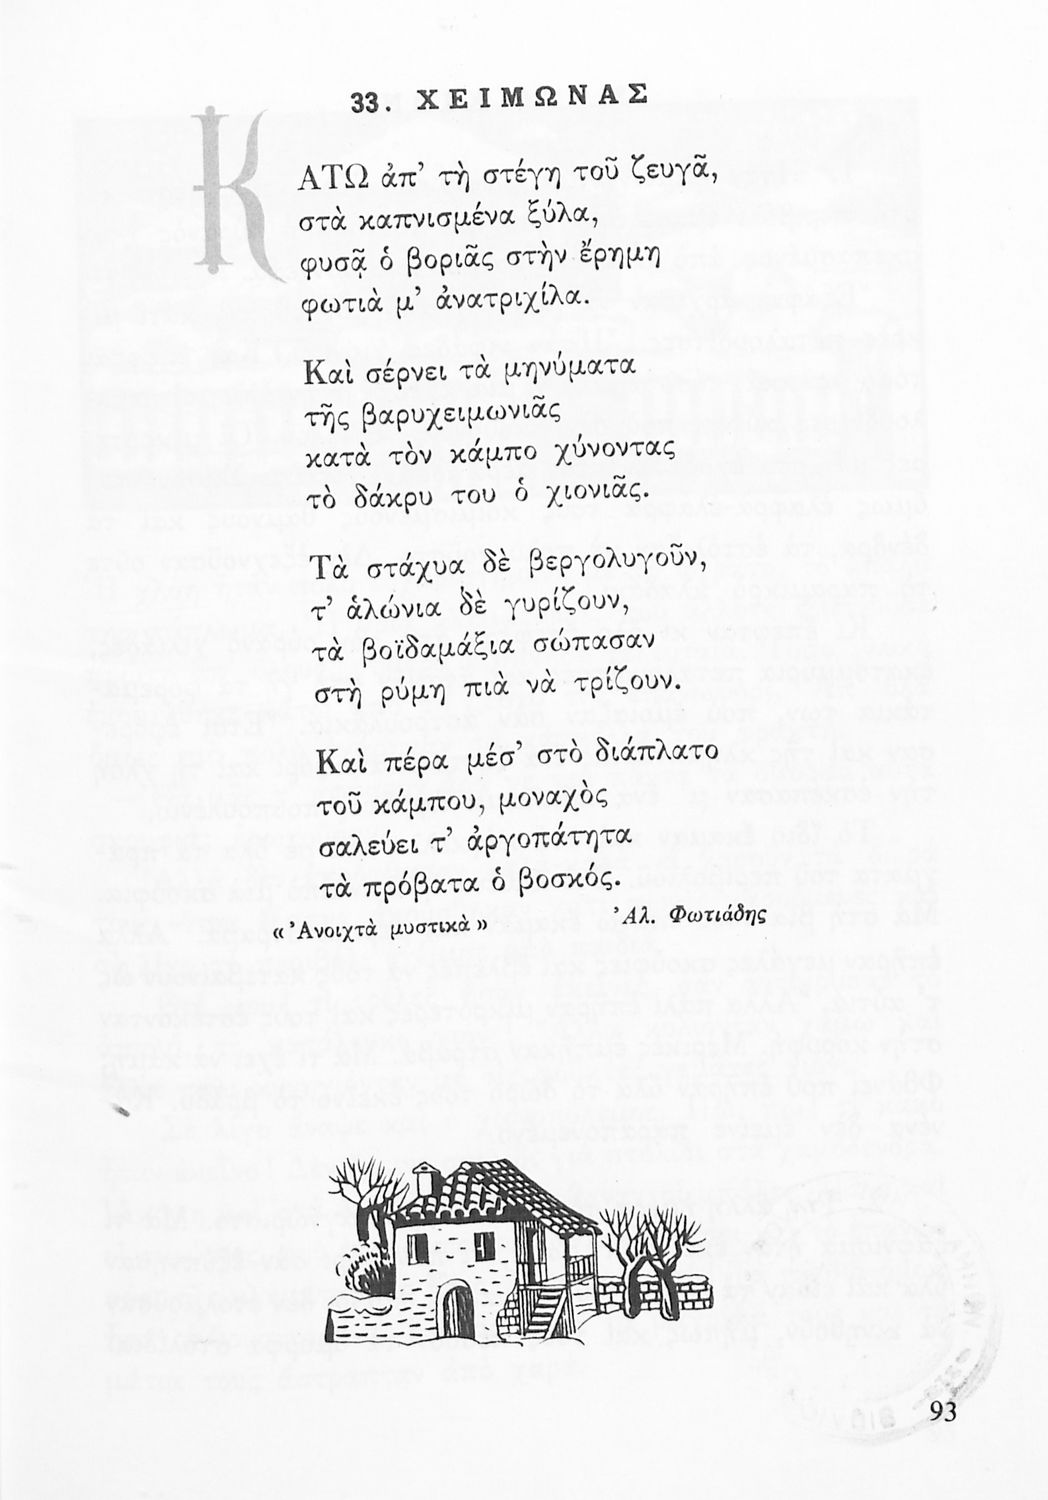 33. ΧΕΙΜΩΝΑΣ
ΚΑΤΩ ἀπ’ τὴ στέγη τοῦ ζευγᾶ,
στὰ καπνισμένα ξύλα,
φυσᾷ ὁ βοριᾶς στὴν ἔρημη
φωτιὰ μ’ ἀνατριχίλα.
Καὶ σέρνει τὰ μηνύματα
τῆς βαρυχειμωνιᾶς
κατὰ τὸν κάμπο χύνοντας
τὸ δάκρυ του ὁ χιονιᾶς.
Τὰ στάχυα δὲ βεργολυγοῦν,
τ’ ἁλώνια δὲ γυρίζουν,
τὰ βοϊδαμάξια σώπασαν
στὴ ρύμη πιὰ νὰ τρίζουν.
Καὶ πέρα μέσ’ στὸ διάπλατο
τοῦ κάμπου, μοναχὸς
σαλεύει τ’ ἀργοπάτητα
τὰ πρόβατα ὁ βοσκός.
« Ἀνοιχτὰ μυστικὰ » Ἀλ. Φωτιάδης
93